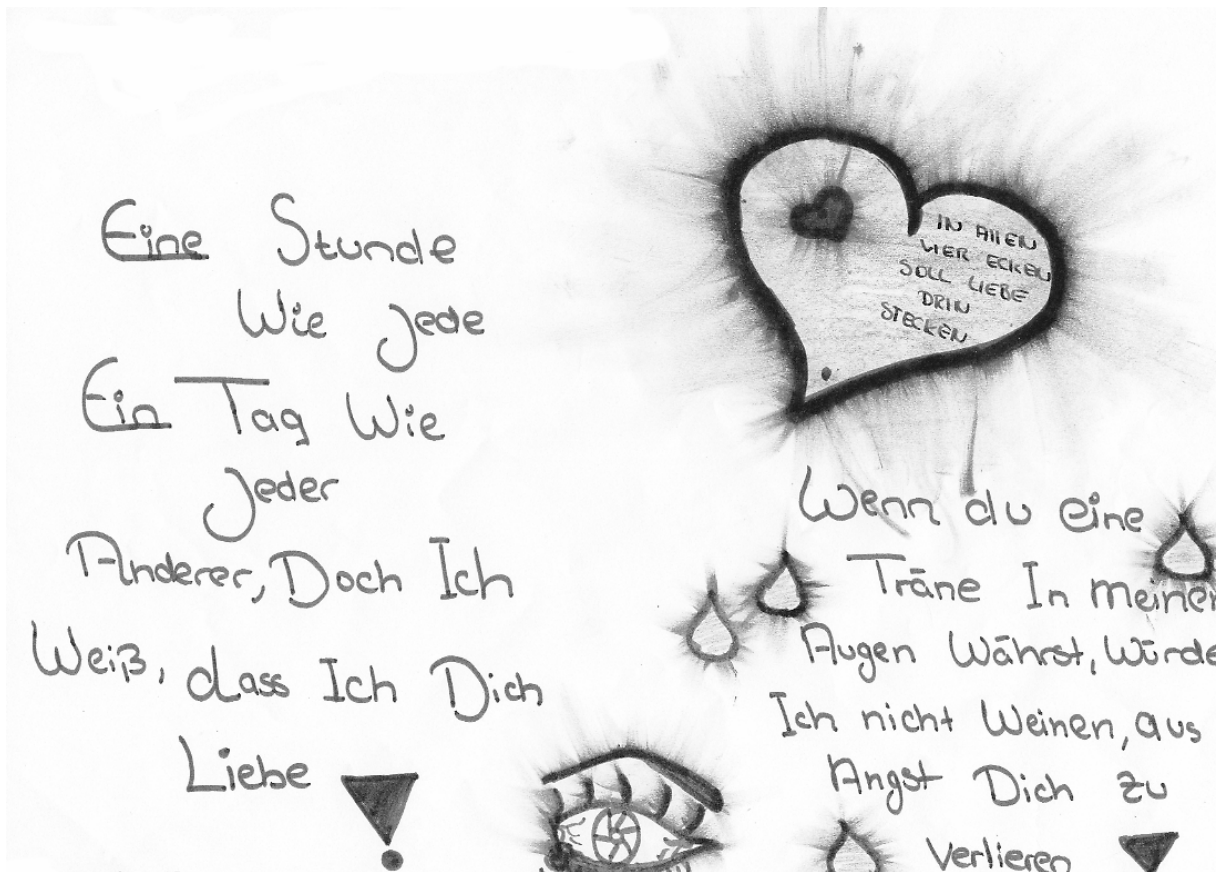 Eine Stunde
Wie jede
Ein Tag Wie
Jeder
Anderer, Doch Ich
Weiß, dass Ich Dich
Liebe !
IN AllEN
VIER ECKEN
SOLL LIEBE
DRIN
STECKEN
Wenn du eine
Träne In meinen
Augen Währst, Würde
Ich nicht Weinen, aus
Angst Dich zu
Verlieren